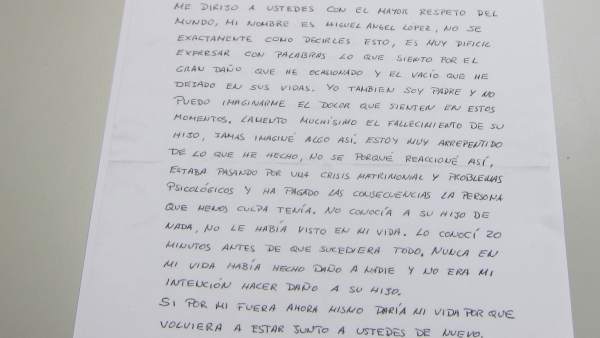 ME DIRIJO A USTEDES CON EL MAYOR RESPETO DEL
MUNDO, MI NOMBRE ES MIGUEL ANGEL LOPEZ, NO SE
EXACTAMENTE COMO DECIRLES ESTO, ES MUY DIFICIL
EXPRESAR CON PALABRAS LO QUE SIENTO POR EL
GRAN DAÑO QUE HE OCASIONADO Y EL VACÍO QUE HE
DEJADO EN SUS VIDAS. YO TAMBIEN SOY PADRE Y NO
PUEDO IMAGINARME EL DOLOR QUE SIENTEN EN ESTOS
MOMENTOS. LAMENTO MUCHÍSIMO EL FALLECIMIENTO DE SU
HIJO, JAMAS IMAGINÉ ALGO ASÍ. ESTOY MUY ARREPENTIDO
DE LO QUE HE HECHO, NO SE PORQUÉ REACCIONÉ ASÍ,
ESTABA PASANDO POR UNA CRISIS MATRIMONIAL Y PROBLEMAS
PSICOLÓGICOS Y HA PAGADO LAS CONSECUENCIAS LA PERSONA
QUE MENOS CULPA TENÍA. NO CONOCÍA A SU HIJO DE
NADA, NO LE HABÍA VISTO EN MI VIDA. LO CONOCÍ 20
MINUTOS ANTES DE QUE SUCEDIERA TODO. NUNCA EN
MI VIDA HABÍA HECHO DAÑO A NADIE Y NO ERA MI
INTENCIÓN HACER DAÑO A SU HIJO.
SI POR MI FUERA AHORA MISMO DARÍA MI VIDA POR QUE
VOLVIERA A ESTAR JUNTO A USTEDES DE NUEVO.